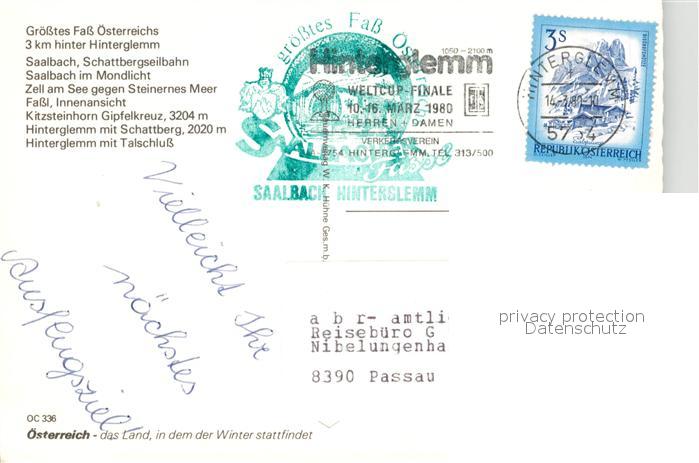 Größtes Faß Österreichs
3 km hinter Hinterglemm
Saalbach, Schattbergseilbahn
Saalbach im Mondlicht
Zell am See gegen Steinernes Meer
Faßl, Innenansicht
Kitzsteinhorn Gipfelkreuz, 3204 m
Hinterglemm mit Schattberg, 2020 m
Hinterglemm mit Talschluß
größtes Faß
1050 – 2100 m
Hinterglemm
WELTCUP-FINALE
10.-16. MÄRZ 1980
HERREN - DAMEN
VERKEHRSVEREIN
A-5754 HINTERGLEMM, TEL. 313/500
SAALBACH HINTERGLEMM
W. K. Hühne Ges.m.b.
3S
HINTERGLEMM
5754
REPUBLIK ÖSTERREICH
Vielleicht Ihr
nächstes
Ausflugsziel!
a b r- amtli
Reisebüro G
Nibelungenha
8390 Passau
privacy protection
Datenschutz
OC 336
Österreich - das Land, in dem der Winter stattfindet